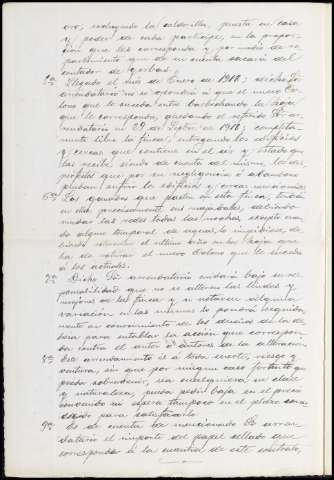 oro, excluyendo la calderilla, puesta en casa
y poder de cada partícipe, en la propor-
ción que les corresponda y por medio de re-
partimiento que de su cuenta sacará del
contador de yerbas.
Llegado el mes de Enero de 1918; dicho Sr.
arrendatario no se opondrá a que el nuevo Co-
lono que le suceda entre barbechando la hoja
que le corresponda, quedando el referido Sr. ar-
rendatario en 29 de Sepbre. de 1918; completa-
mente libre la finca, entregando los edificios
y cercas que contiene en el ser y estado que
las recibe, siendo de cuenta del mismo, los des-
perfectos que por su negligencia o abandono
pudieran sufrir los edificios y cercas mencionadas
6ª Los ganados que pasten en esta finca, tendrán
en ella precisamente sus majadales, debiendo
mudar las redes todas las noches, excepto cuan-
do algun temporal de aguas lo impidiese, de-
biendo estercolar el último año en las hojas que
ha de roturar el nuevo Colono que le suceda
á los actuales.
7ª Dicho Sr. arrendatario cuidará bajo su res-
ponsabilidad que no se alteren las lindes y
mojones de la finca y si notare alguna
variación en las mismas lo pondrá seguida-
mente en conocimiento de los dueños de la de-
hesa para entablar la acción que correspon-
da contra el autor ó autores de la alteración
8ª Este arrendamiento es á todo evento, riesgo y
ventura, sin que por ningun caso fortuito que
pueda sobrevenir, sea cualquiera su clase
y naturaleza, pueda pedir baja en el precio
convenido ni espera tampoco en el plazo conve-
nido para satisfacerlo.
9ª Es de cuenta del mencionado Sr. arren-
datario el importe del papel sellado que
corresponda á la cuantía de este contrato,